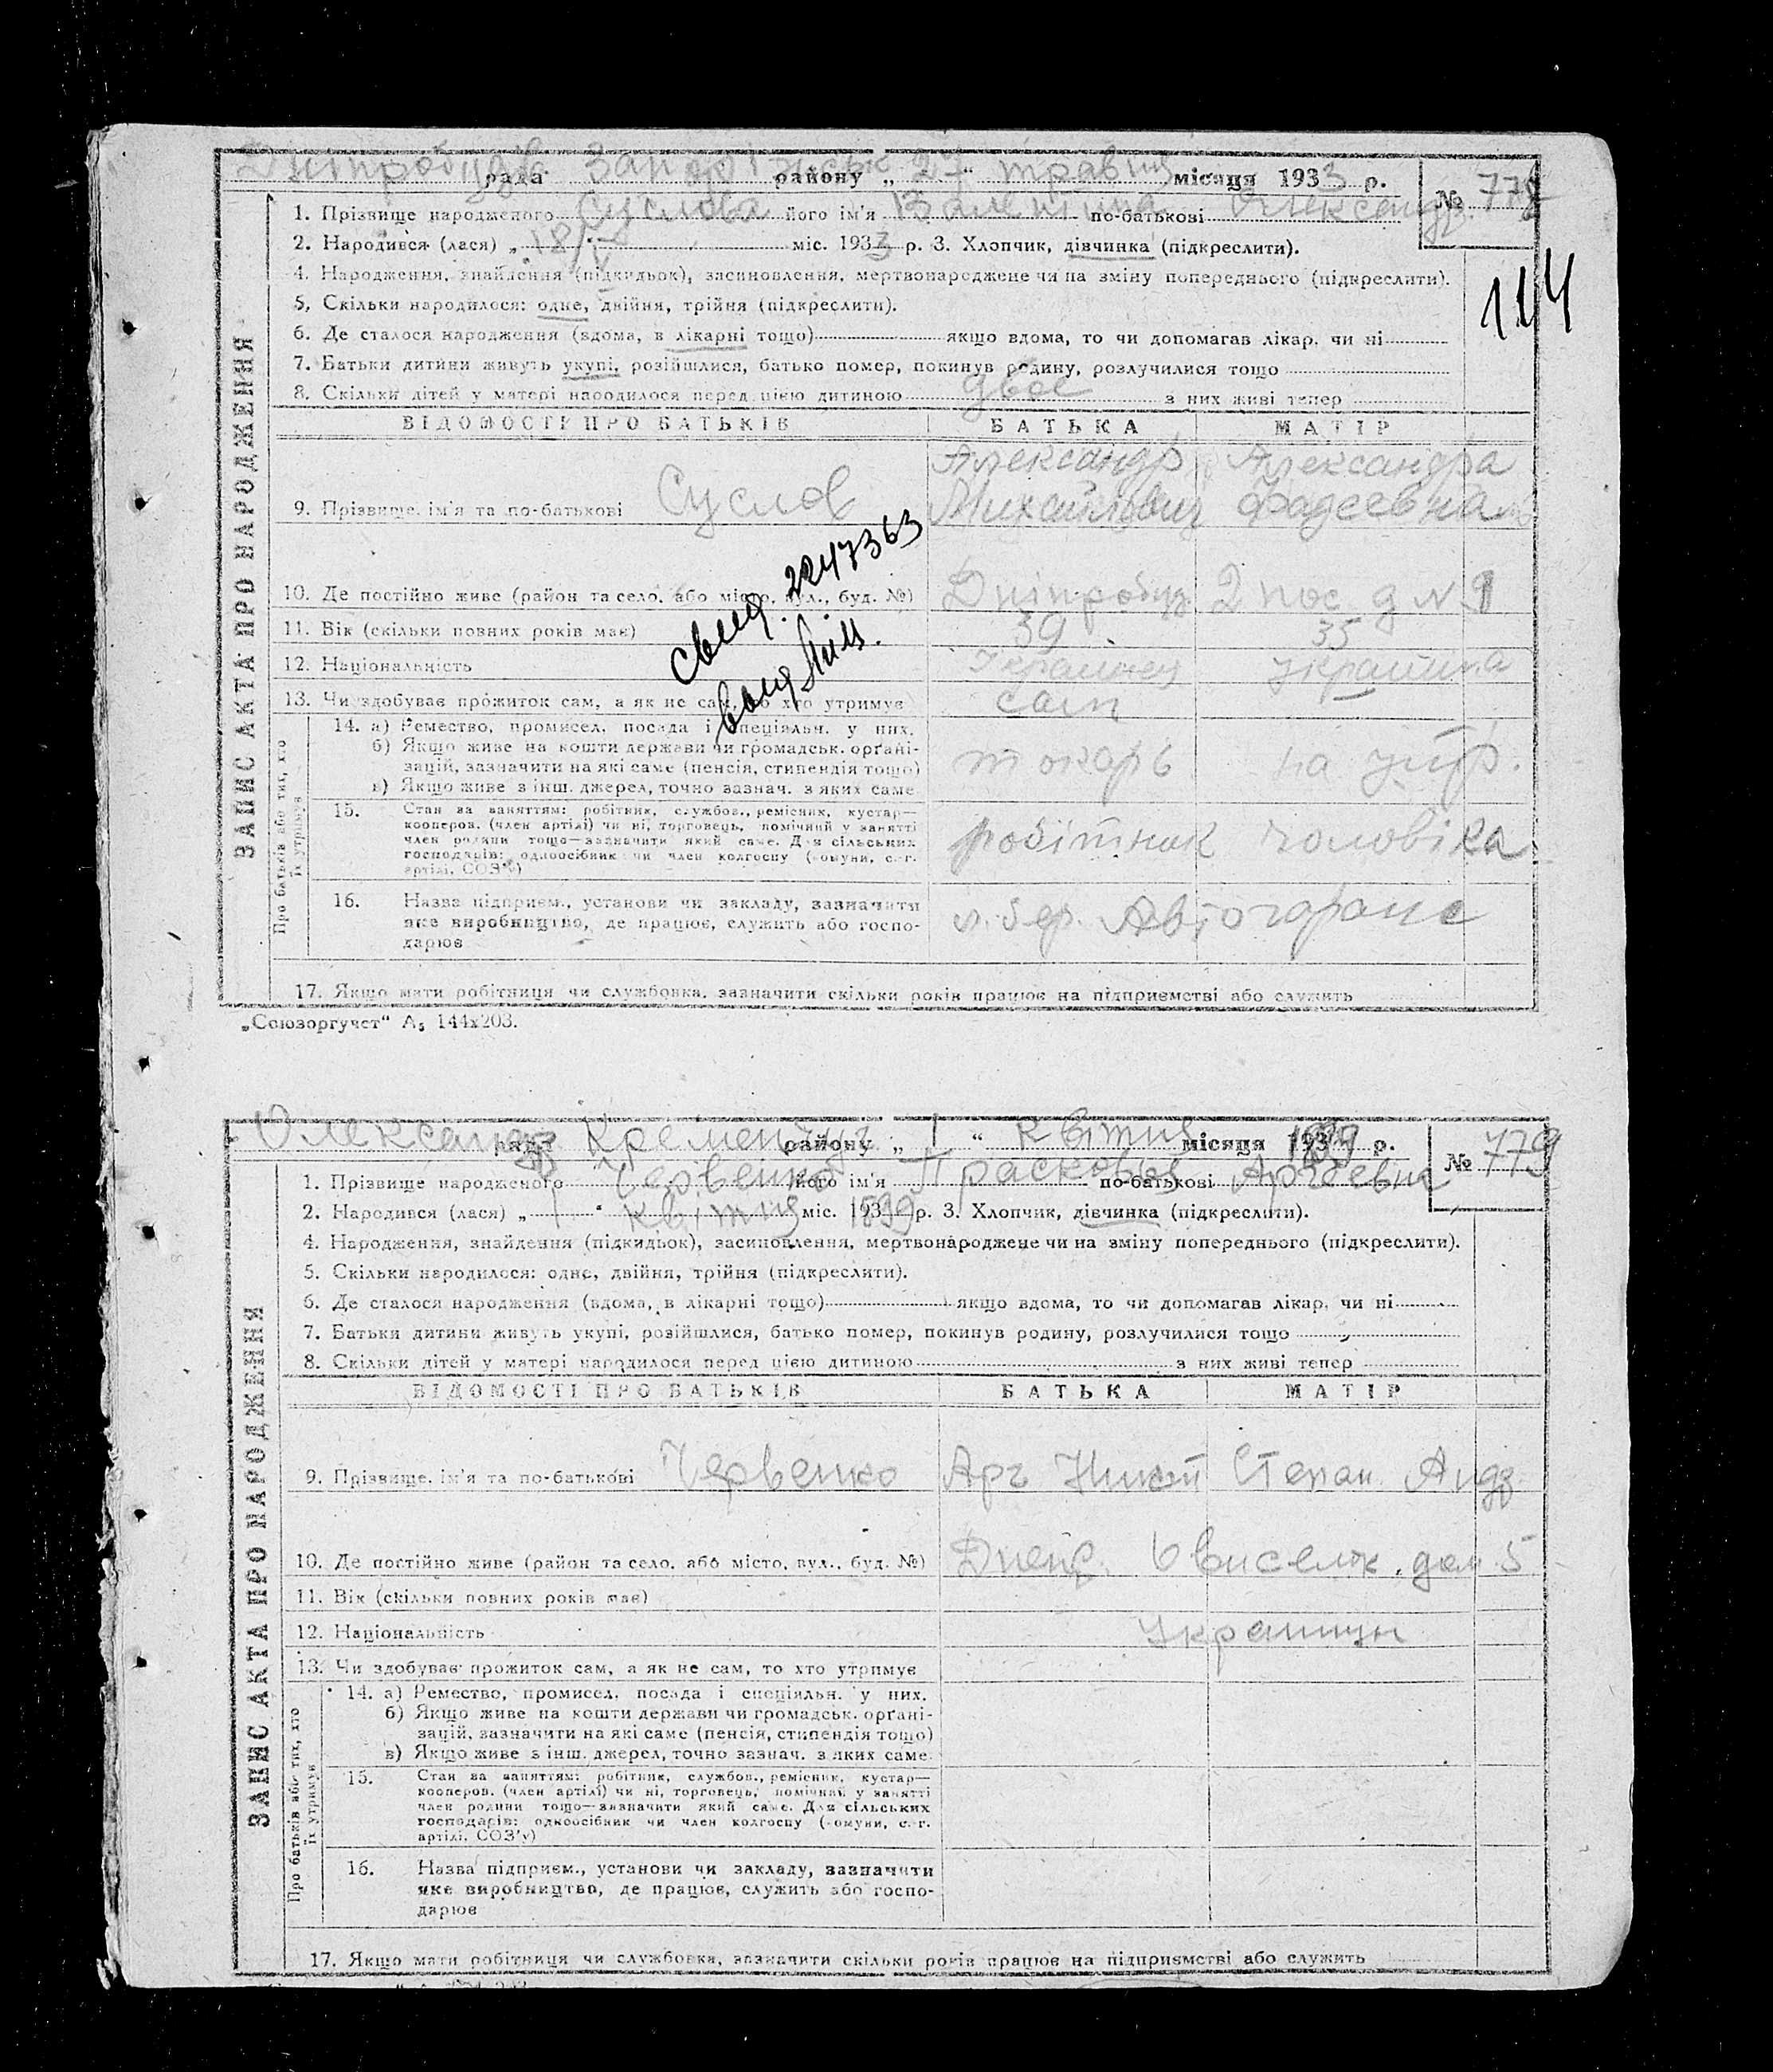 Дніпробуд рада Запоріжськ району „ 27 “ травня місяця 1933 р.
№ 778
1. Прізвище народженого Суслова його ім'я Валентина по-батькові Олександр.
2. Народився (лася) „ 18/V міс. 1933 р. 3. Хлопчик, дівчинка (підкреслити).
4. Народження, знайдення (підкидьок), засиновлення, мертвонароджене чи на зміну попереднього (підкреслити).
114
5. Скільки народилося: одне, двійня, трійня (підкреслити).
6. Де сталося народження (вдома, в лікарні тощо) якщо вдома, то чи допомагав лікар, чи ні
7. Батьки дитини живуть укупі, розійшлися, батько помер, покинув родину, розлучилися тощо
8. Скільки дітей у матері народилося перед цією дитиною двоє з них живі тепер
ВІДОМОСТІ ПРО БАТЬКІВ БАТЬКА МАТІР
Александр Александра
9. Прізвище, ім'я та по-батькові Суслов Михайлович Фадеевна
10. Де постійно живе (район та село, або місто, вул., буд. №) Дніпробуд 2 пос. д №
11. Вік (скільки повних років має) 39 35
12. Національність Украинец украинка
13. Чи здобуває прожиток сам, а як не сам, то хто утримує сам
свид. 2247363
14. а) Ремество, промисел, посада і спеціяльн. у них.
б) Якщо живе на кошти держави чи громадськ. орґані-
зацій, зазначити на які саме (пенсія, стипендія тощо) токарь на утр.
в) Якщо живе з інш. джерел, точно зазнач. з яких саме
15. Стан за заняттям: робітник, службов., ремісник, кустар—
кооперов. (член артілі) чи ні, торговець, помічний у занятті
член родини тощо—зазначити який саме. Для сільських
господарів: одноосібник чи член колгоспу (комуни, с.-г.
артілі, СОЗ'у) робітник чоловіка
16. Назва підприєм., установи чи закладу, зазначити
яке виробництво, де працює, служить або госпо-
дарює л. бер. Автогараж
17. Якщо мати робітниця чи службовка, зазначити скільки років працює на підприємстві або служить
ЗАПИС АКТА ПРО НАРОДЖЕННЯ
Про батьків або тих, хто їх утримує
„Союзоргучет“ А5 144х203.
Олександр рада Кременчуг району „ 1 “ квітня місяця 1899 р.
№ 779
1. Прізвище народженого Червенко його ім'я Прасковья по-батькові Арчеевна
2. Народився (лася) „ 1 “ квітня міс. 1899 р. 3. Хлопчик, дівчинка (підкреслити).
4. Народження, знайдення (підкидьок), засиновлення, мертвонароджене чи на зміну попереднього (підкреслити).
5. Скільки народилося: одне, двійня, трійня (підкреслити).
6. Де сталося народження (вдома, в лікарні тощо) якщо вдома, то чи допомагав лікар, чи ні
7. Батьки дитини живуть укупі, розійшлися, батько помер, покинув родину, розлучилися тощо
8. Скільки дітей у матері народилося перед цією дитиною з них живі тепер
ВІДОМОСТІ ПРО БАТЬКІВ БАТЬКА МАТІР
9. Прізвище, ім'я та по-батькові Червенко Арч Никит Степан. Андр
10. Де постійно живе (район та село, або місто, вул., буд. №) Днепр. 6 виселок. дом 5
11. Вік (скільки повних років має)
12. Національність Украинцы
13. Чи здобуває прожиток сам, а як не сам, то хто утримує
14. а) Ремество, промисел, посада і спеціяльн. у них.
б) Якщо живе на кошти держави чи громадськ. орґані-
зацій, зазначити на які саме (пенсія, стипендія тощо)
в) Якщо живе з інш. джерел, точно зазнач. з яких саме
15. Стан за заняттям: робітник, службов., ремісник, кустар—
кооперов. (член артілі) чи ні, торговець, помічний у занятті
член родини тощо—зазначити який саме. Для сільських
господарів: одноосібник чи член колгоспу (комуни, с.-г.
артілі, СОЗ'у)
16. Назва підприєм., установи чи закладу, зазначити
яке виробництво, де працює, служить або госпо-
дарює
17. Якщо мати робітниця чи службовка, зазначити скільки років працює на підприємстві або служить
ЗАПИС АКТА ПРО НАРОДЖЕННЯ
Про батьків або тих, хто їх утримує